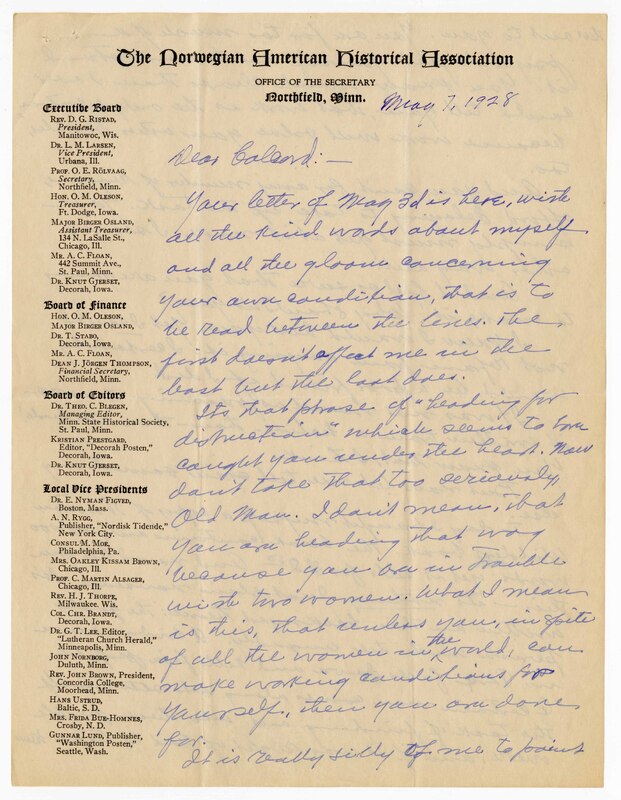 The Norwegian American Historical Association
OFFICE OF THE SECRETARY
Northfield, Minn.
May 7, 1928
Executive Board
REV. D. G. RISTAD,
President,
Manitowoc, Wis.
DR. L. M. LARSEN,
Vice President,
Urbana, Ill.
PROF. O. E. RÖLVAAG,
Secretary,
Northfield, Minn.
HON. O. M. OLESON,
Treasurer,
Ft. Dodge, Iowa.
MAJOR BIRGER OSLAND,
Assistant Treasurer,
134 N. LaSalle St.,
Chicago, Ill.
MR. A. C. FLOAN,
442 Summit Ave.,
St. Paul, Minn.
DR. KNUT GJERSET,
Decorah, Iowa.
Board of Finance
HON. O. M. OLESON,
MAJOR BIRGER OSLAND,
DR. T. STABO,
Decorah, Iowa.
MR. A. C. FLOAN,
DEAN J. JÖRGEN THOMPSON,
Financial Secretary,
Northfield, Minn.
Board of Editors
DR. THEO. C. BLEGEN,
Managing Editor,
Minn. State Historical Society,
St. Paul, Minn.
KRISTIAN PRESTGARD,
Editor, "Decorah Posten,"
Decorah, Iowa.
DR. KNUT GJERSET,
Decorah, Iowa.
Local Vice Presidents
DR. E. NYMAN FIGVED,
Boston, Mass.
A. N. RYGG,
Publisher, "Nordisk Tidende,"
New York City.
CONSUL M. MOE,
Philadelphia, Pa.
MRS. OAKLEY KISSAM BROWN,
Chicago, Ill.
PROF. C. MARTIN ALSAGER,
Chicago, Ill.
REV. H. J. THORPE,
Milwaukee. Wis.
COL. CHR. BRANDT,
Decorah, Iowa.
DR. G. T. LEE, Editor,
"Lutheran Church Herald,"
Minneapolis, Minn.
JOHN NORNBORG,
Duluth, Minn.
REV. JOHN BROWN, President,
Concordia College,
Moorhead, Minn.
HANS USTRUD,
Baltic, S. D.
MRS. FRIDA BUE-HOMNES,
Crosby, N. D.
GUNNAR LUND, Publisher,
"Washington Posten,"
Seattle, Wash.
Dear Colcord:—
Your letter of May 3d is here, with
all the kind words about myself
and all the gloom concerning
your own condition, that is to
be read between the lines. The
first doesn't affect me in the
least but the last does.
Its that phrase of "heading for
distruction" which seems to have
caught you under the heart. Now
don't take that too seriously,
Old Man. I don't mean, that
you are heading that way
because you are in trouble
with two women. What I mean
is this, that unless you, in spite
of all the women in the world, can
make working conditions for
yourself, then you are done
for.
It is really silly of me to point